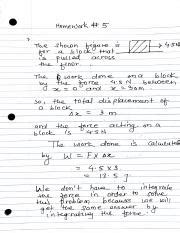 Homework # 5
The shown figure is → 4.5N
for a block that
is pulled across
the floor.
The work done on a block
by the force 4.5 N between
x = 0 and x = 3 m
So, the total displacement of
a block
Δx = 3 m
and the force acting on a
block is 4.5 N
The work done is calculated
by W = F × Δx
= 4.5 × 3
= 13.5 J
We don't have to integrate
the force in order to solve
this problem because we will
get the same answer by
integrating the force.